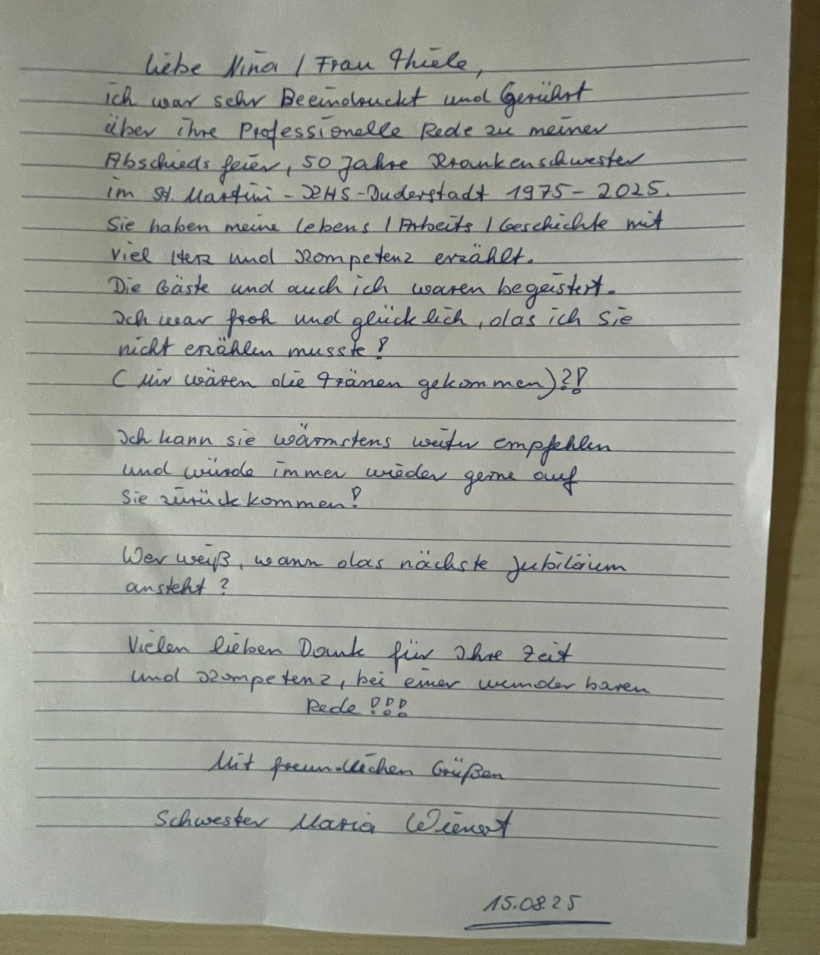 liebe Nina / Frau Thiele,
ich war sehr Beeindruckt und Gerührt
über ihre Professionelle Rede zu meiner
Abschieds feier, 50 Jahre Krankenschwester
im St. Martini - KHS - Duderstadt 1975 - 2025.
Sie haben meine lebens / Arbeits / Geschichte mit
viel Herz und Kompetenz erzählt.
Die Gäste und auch ich waren begeistert.
Ich war froh und glücklich, das ich sie
nicht erzählen musste!
( Mir wären die Tränen gekommen)?!
Ich kann sie wärmstens weiter empfehlen
und würde immer wieder gerne auf
Sie zurück kommen!
Wer weiß, wann das nächste Jubiläum
ansteht?
Vielen lieben Dank für Ihre Zeit
und Kompetenz, bei einer wunder baren
Rede !!!
Mit freundlichen Grüßen
Schwester Maria Wienert
15.08.25